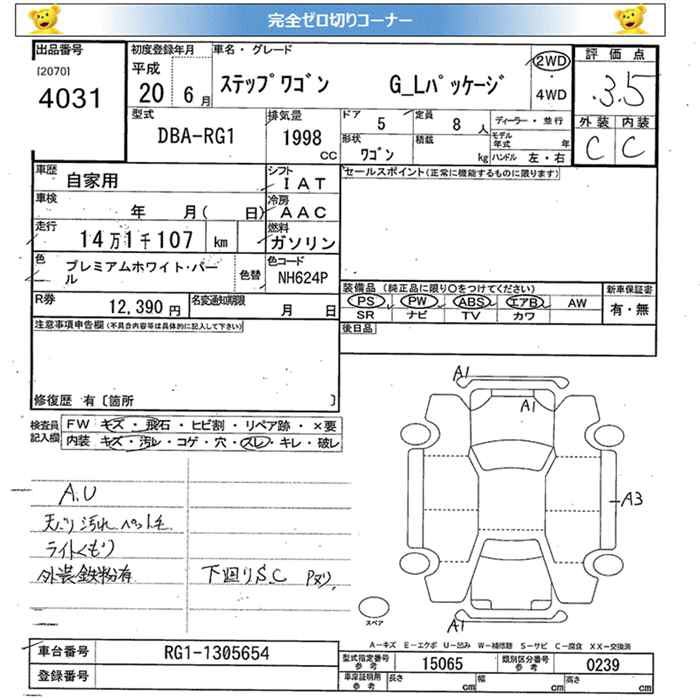 完全ゼロ切りコーナー
出品番号
[2070]
4031
初度登録年月
平成
20 6月
車名・グレード
ステップワゴン G_Lパッケージ
2WD
4WD
評価点
3.5
外装 内装
C C
型式
DBA-RG1
排気量
1998
cc
ドア
5
定員
8 人
ディーラー・並行
モデル年式 年
形状
ワゴン
積載
kg
ハンドル 左・右
車歴
自家用
シフト
IAT
セールスポイント(正常に機能するものに限ります)
車検
年 月( 日)
冷房
AAC
走行
14万1千107 km
燃料
ガソリン
色
プレミアムホワイト・パール
色替
色コード
NH624P
R券
12,390 円
名変通知期限
月 日
装備品(純正品に限り○をつけてください)
PS PW ABS エアB AW
SR ナビ TV カワ
新車保証書
有・無
後日品
注意事項申告欄(不具合内容等は具体的に記入して下さい)
修復歴 有〔箇所 〕
検査員記入欄
FW キズ・飛石・ヒビ割・リペア跡・×要
内装 キズ・汚レ・コゲ・穴・スレ・キレ・破レ
A.U
天バリ汚れ ペット毛
ライトくもり
外装鉄粉有
下回りS.C Pヌリ
A1
A1
A3
A1
スペア
A-キズ E-エクボ U-凹み W-補修跡 S-サビ C-腐食 XX-交換済
車台番号
RG1-1305654
登録番号
型式指定番号 参考
15065
類別区分番号 参考
0239
車庫証明用 参考
長さ cm
幅 cm
高さ cm